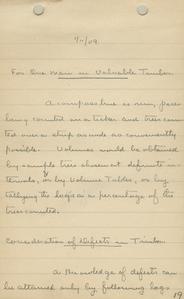 9/11/09.
For Use when in Valuable Timber
A compass line is run, paces
being counted on a ticker and trees counted
over a strip as wide as conveniently
possible. Volumes would be obtained
by sample trees chosen at definite in-
tervals, or by Volume Tables, or by
tallying the logs as a percentage of the
trees counted.
Consideration of Defects in Timber
A Knowledge of defects can
be attained only by following logs
19